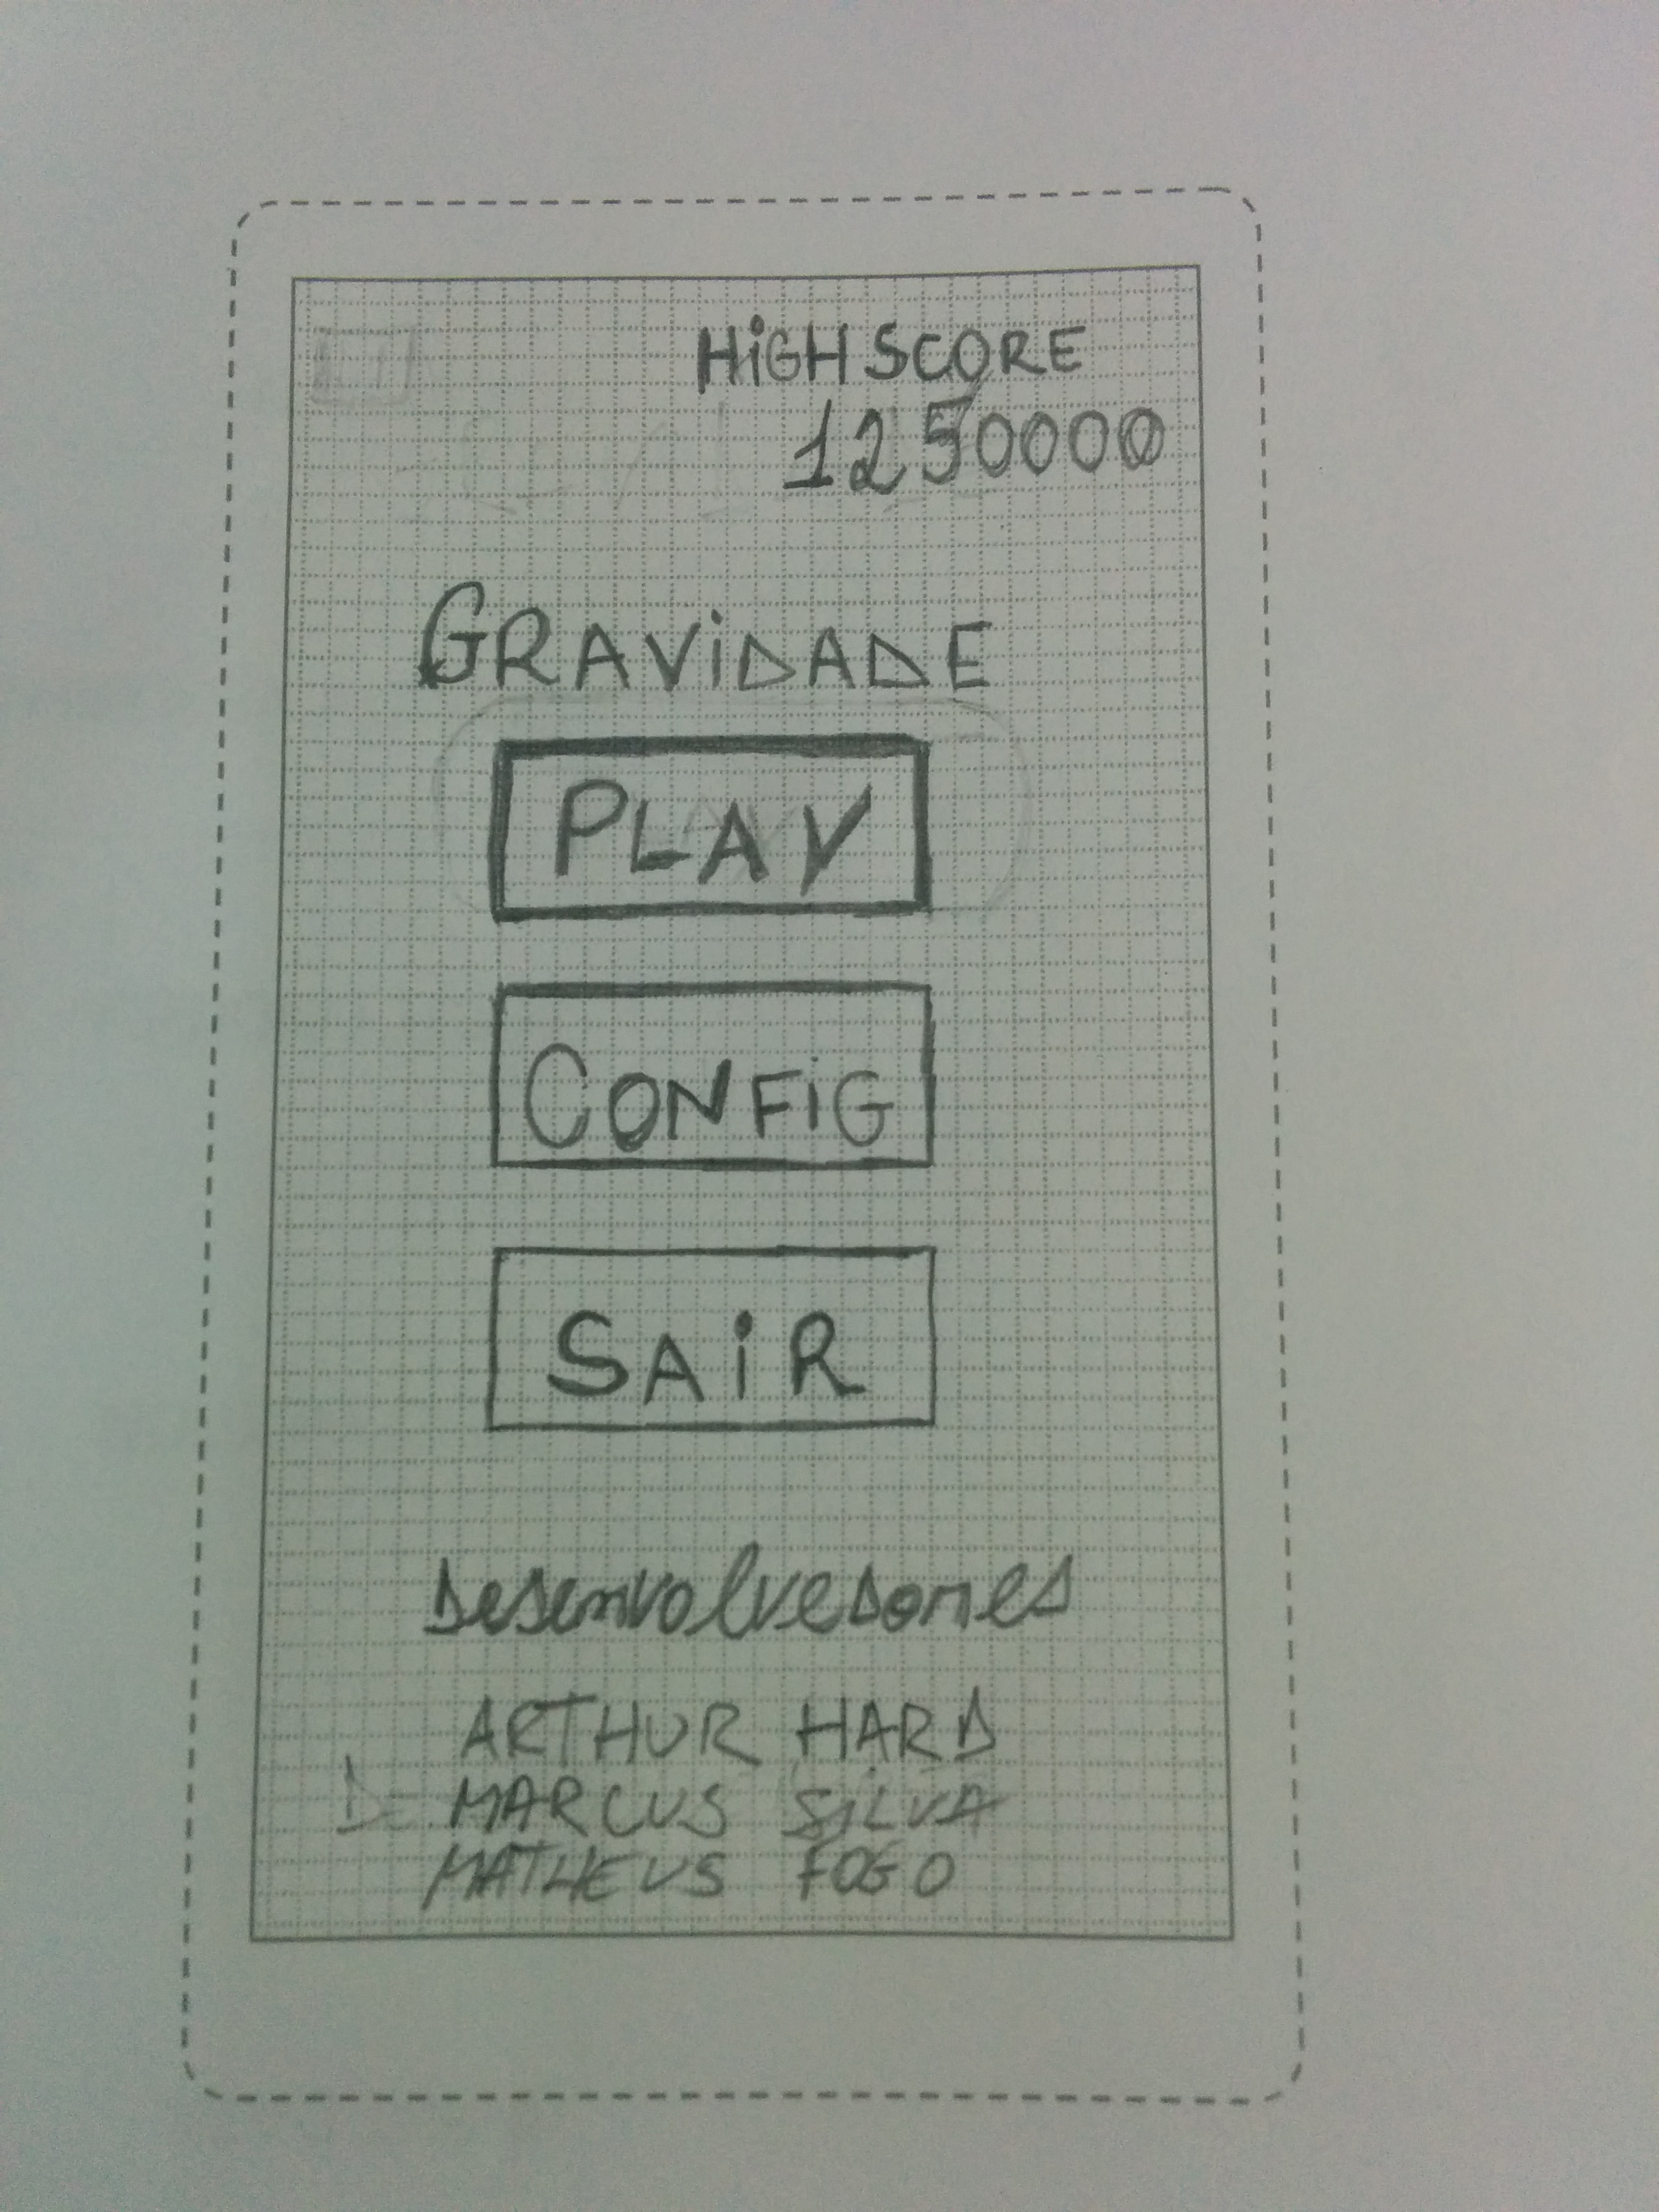 HiGH SCORE
1250000
GRAViDADE
PLAY
CONFiG
SAiR
Desenvolvedores
ARTHUR HARD
MARCUS SiLVA
MATHEUS FOGO